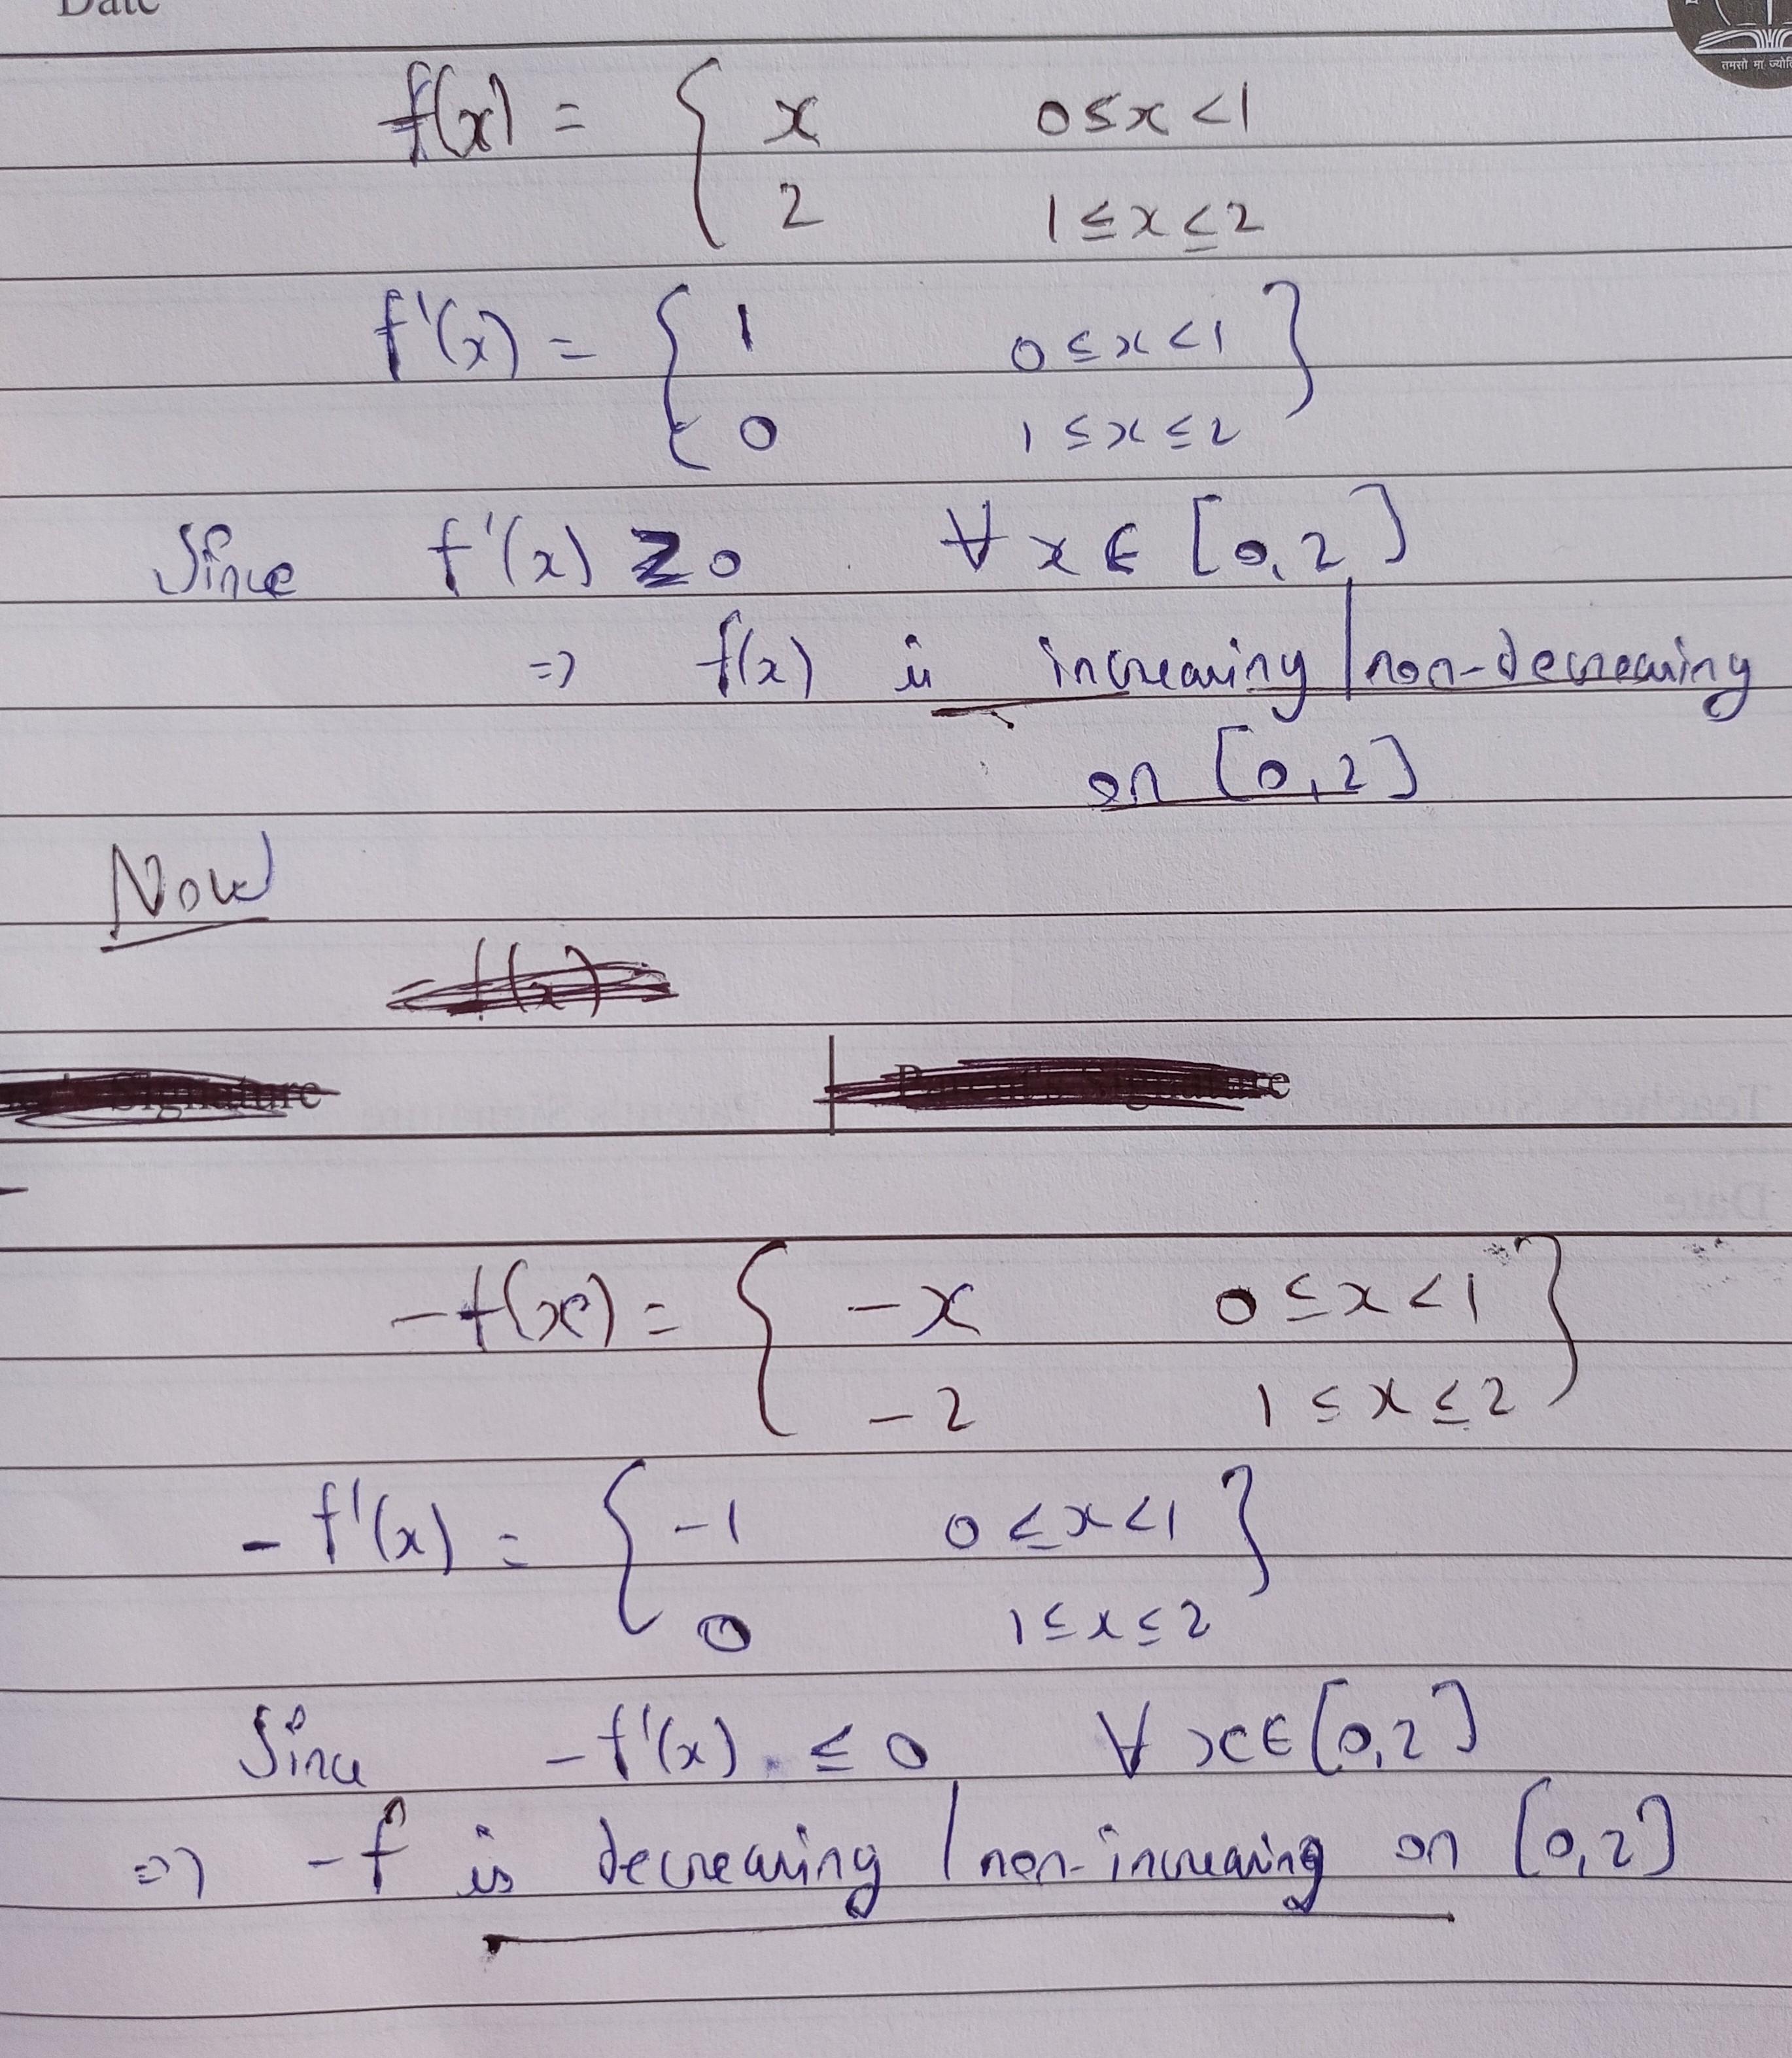 Date
तमसो मा ज्योति
f(x) = { x 0≤x<1
2 1≤x≤2
f'(x) = { 1 0≤x<1 }
0 1≤x≤2
Since f'(x) ≥ 0 ∀ x ∈ [0,2]
⇒ f(x) is increasing / non-decreasing
on [0,2]
Now
f(x)
Signature Parent's Signature
-f(x) = { -x 0≤x<1 }
-2 1≤x≤2
-f'(x) = { -1 0≤x<1 }
0 1≤x≤2
Since -f'(x) ≤ 0 ∀ x∈[0,2]
⇒ -f is decreasing / non-increasing on [0,2]